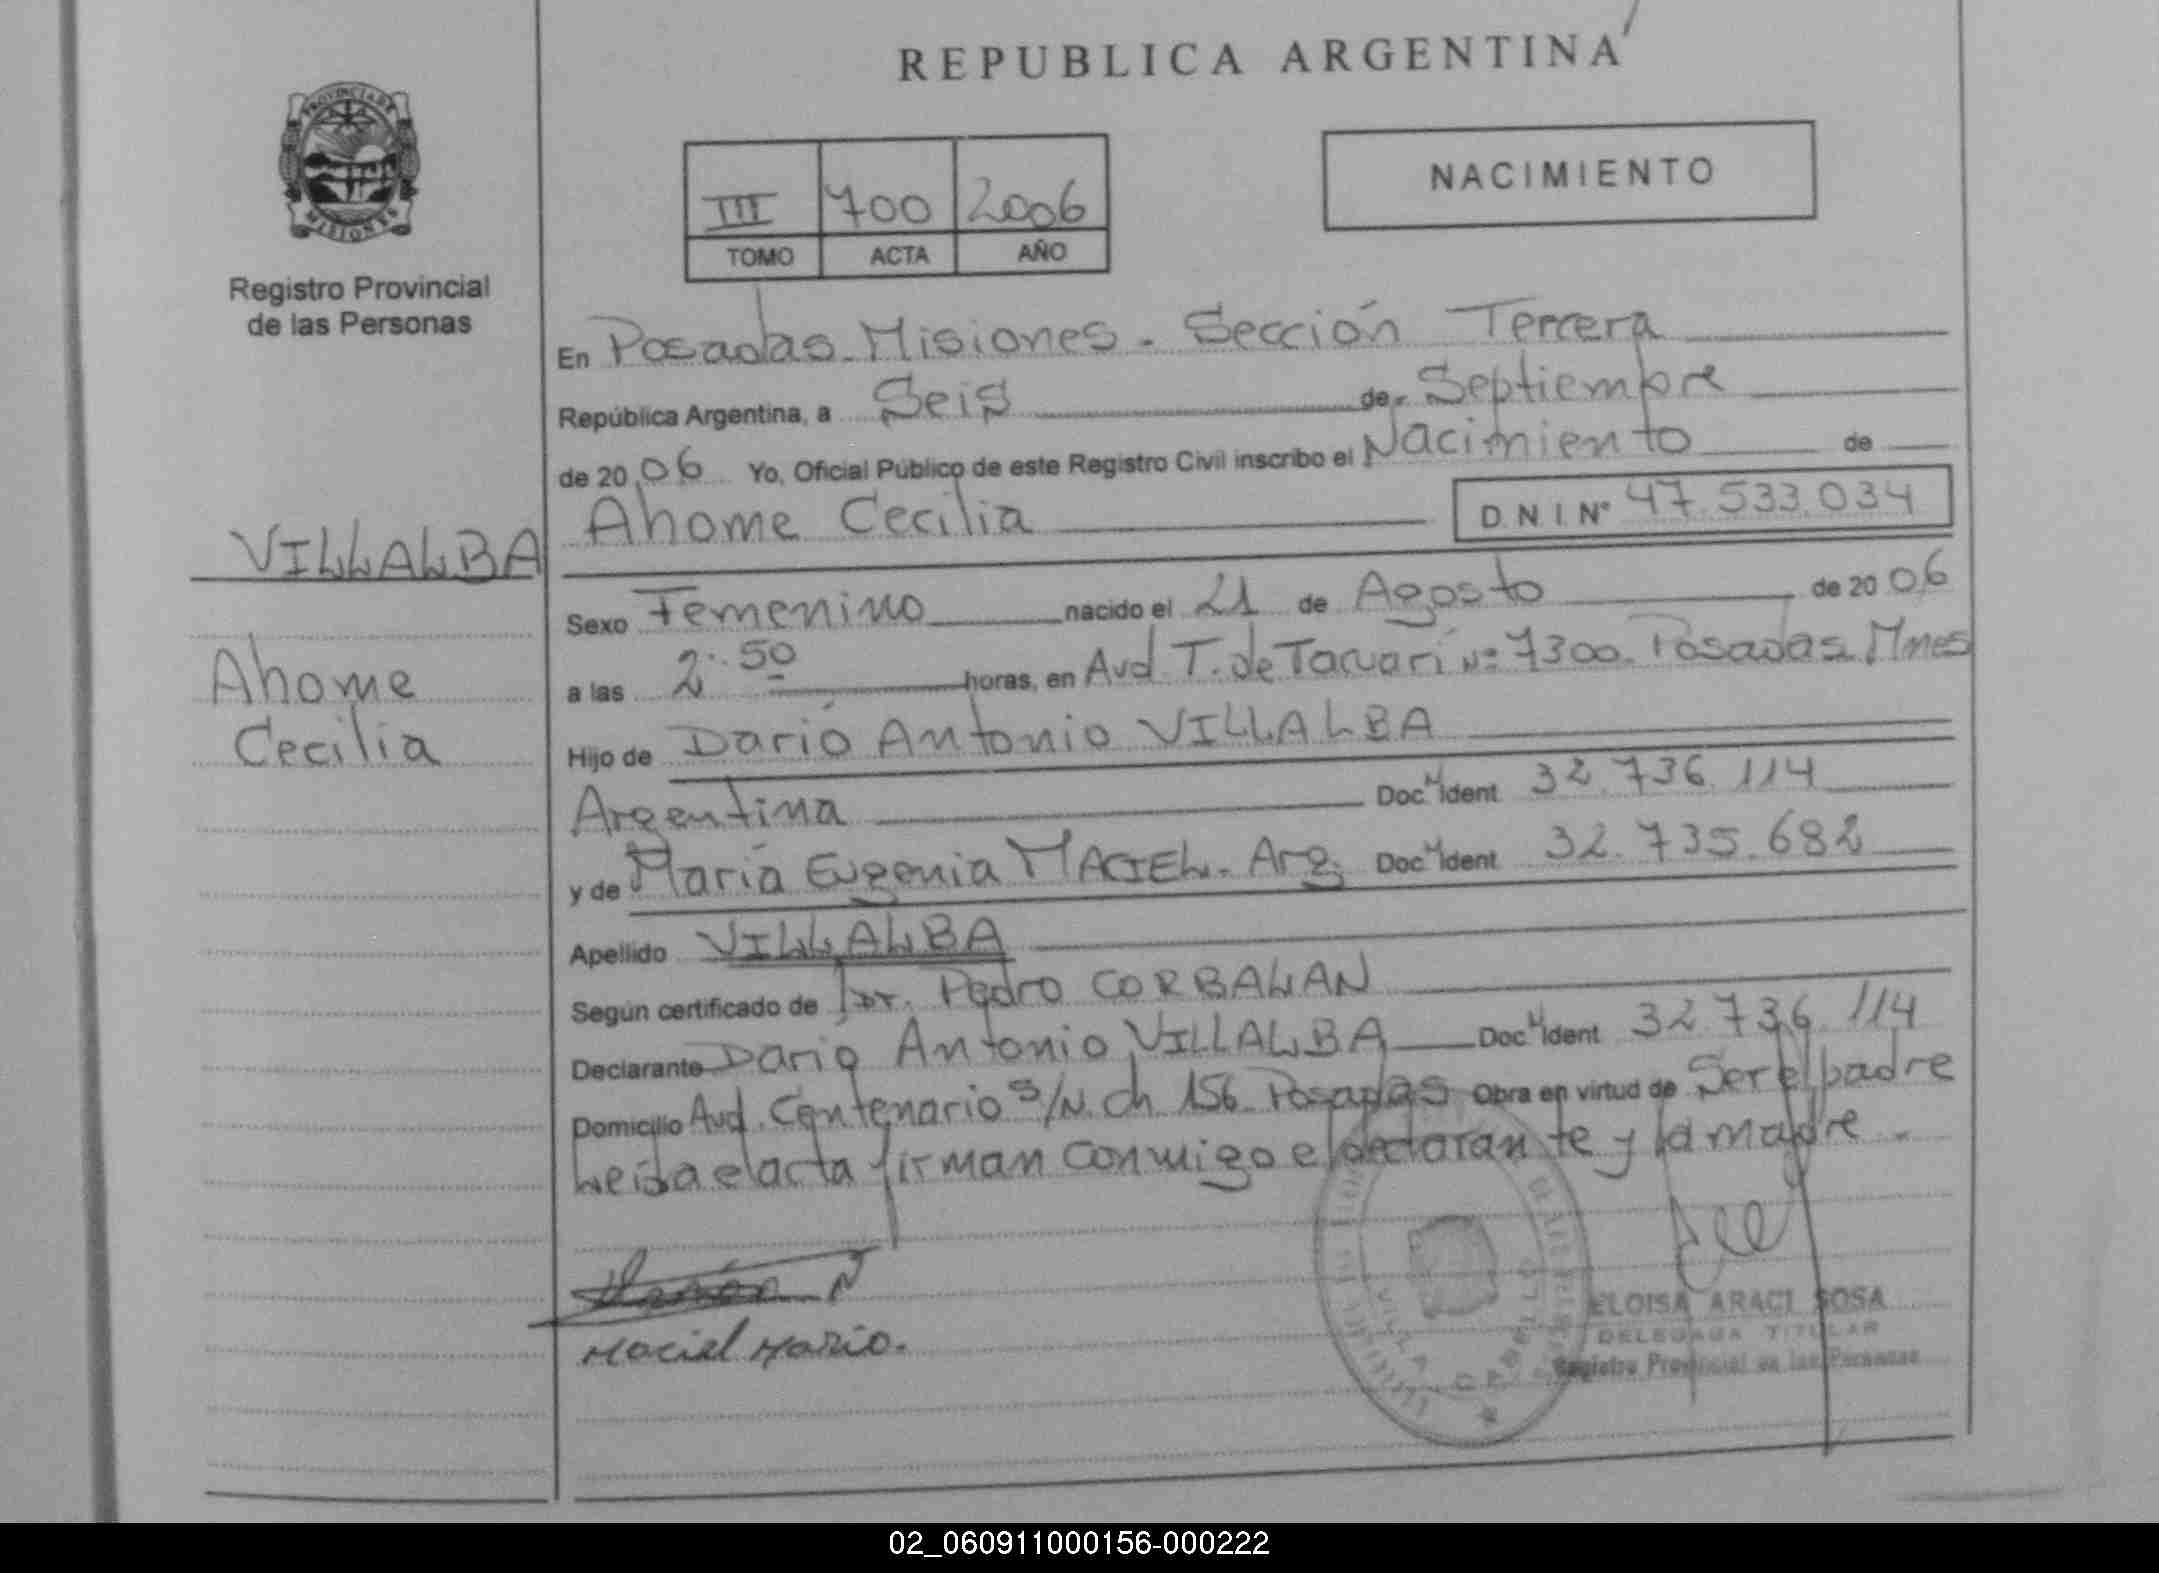 REPUBLICA ARGENTINA
PROVINCIA DE
MISIONES
Registro Provincial
de las Personas
III 700 2006
TOMO ACTA AÑO
NACIMIENTO
En Posadas. Misiones. Sección Tercera
República Argentina, a Seis de Septiembre
de 2006 Yo, Oficial Público de este Registro Civil inscribo el Nacimiento de
Ahome Cecilia D N I Nº 47.533.034
VILLALBA
Ahome
Cecilia
Sexo Femenino nacido el 21 de Agosto de 2006
a las 2:50 horas, en Avd. T. de Tacuarí Nº 7300. Posadas Mnes
Hijo de Darío Antonio VILLALBA
Argentina Doc N Ident 32.736.114
y de María Eugenia MACIEL. Arg. Doc N Ident 32.735.682
Apellido VILLALBA
Según certificado de Dr. Pedro CORBALAN
Declarante Dario Antonio VILLALBA Doc N Ident 32.736.114
Domicilio Avd. Centenario s/N. ch 156 Posadas Obra en virtud de Ser el padre
Leida el acta firman conmigo el declarante y la madre.
Maciel Maria.
ELOISA ARACI SOSA
DELEGADA TITULAR
Registro Provincial de las Personas
VILLA CABELLO
02_060911000156-000222